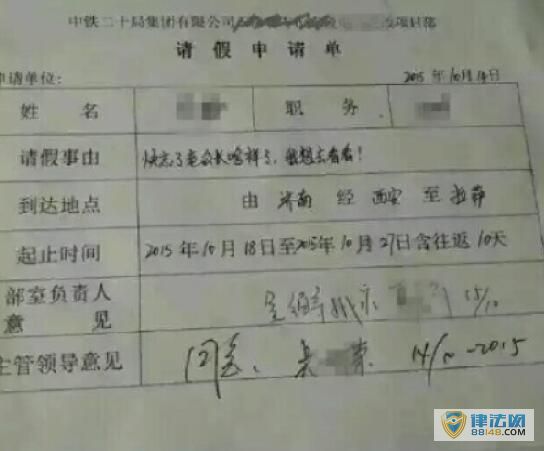 中铁二十局集团有限公司 项目部
请假申请单
申请单位: 2015年10月14日
姓名 职务
请假事由 快忘了老公长啥样了,我想去看看!
到达地点 由 济南 经 西安 至 拉萨
起止时间 2015年10月18日至2015年10月27日含往返10天
部室负责人
意见 15/10
主管领导意见 同意、 14/10-2015
律法网
88148.COM